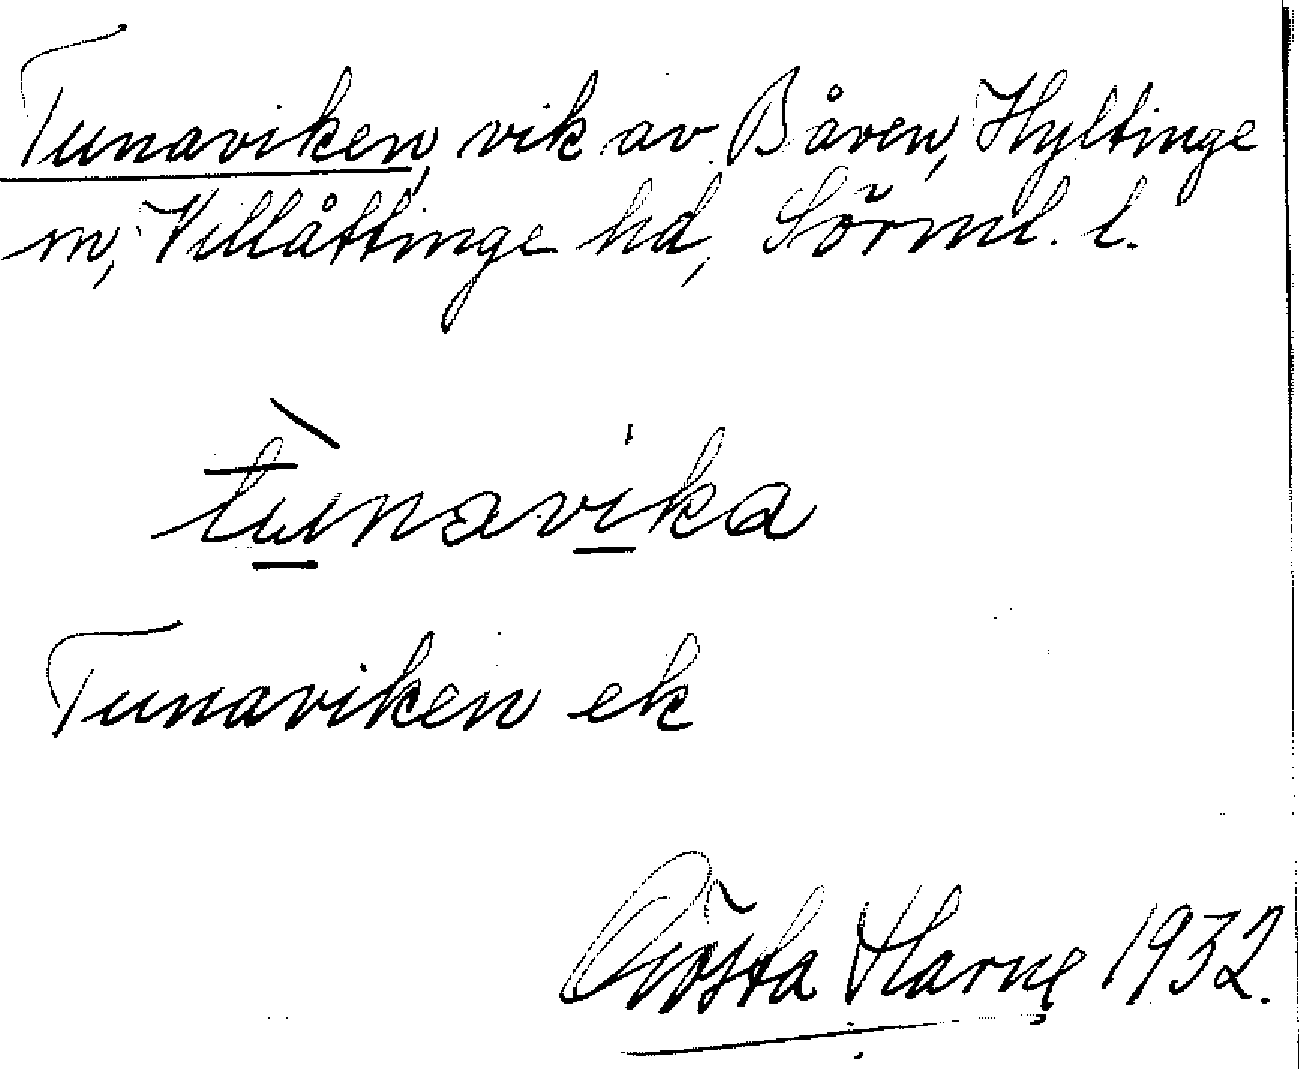 Tunaviken, vik av Båven, Hyltinge
sn, Villåttinge hd, Sörml. l.
tùnavika
Tunaviken ek
Gösta Harne 1932.